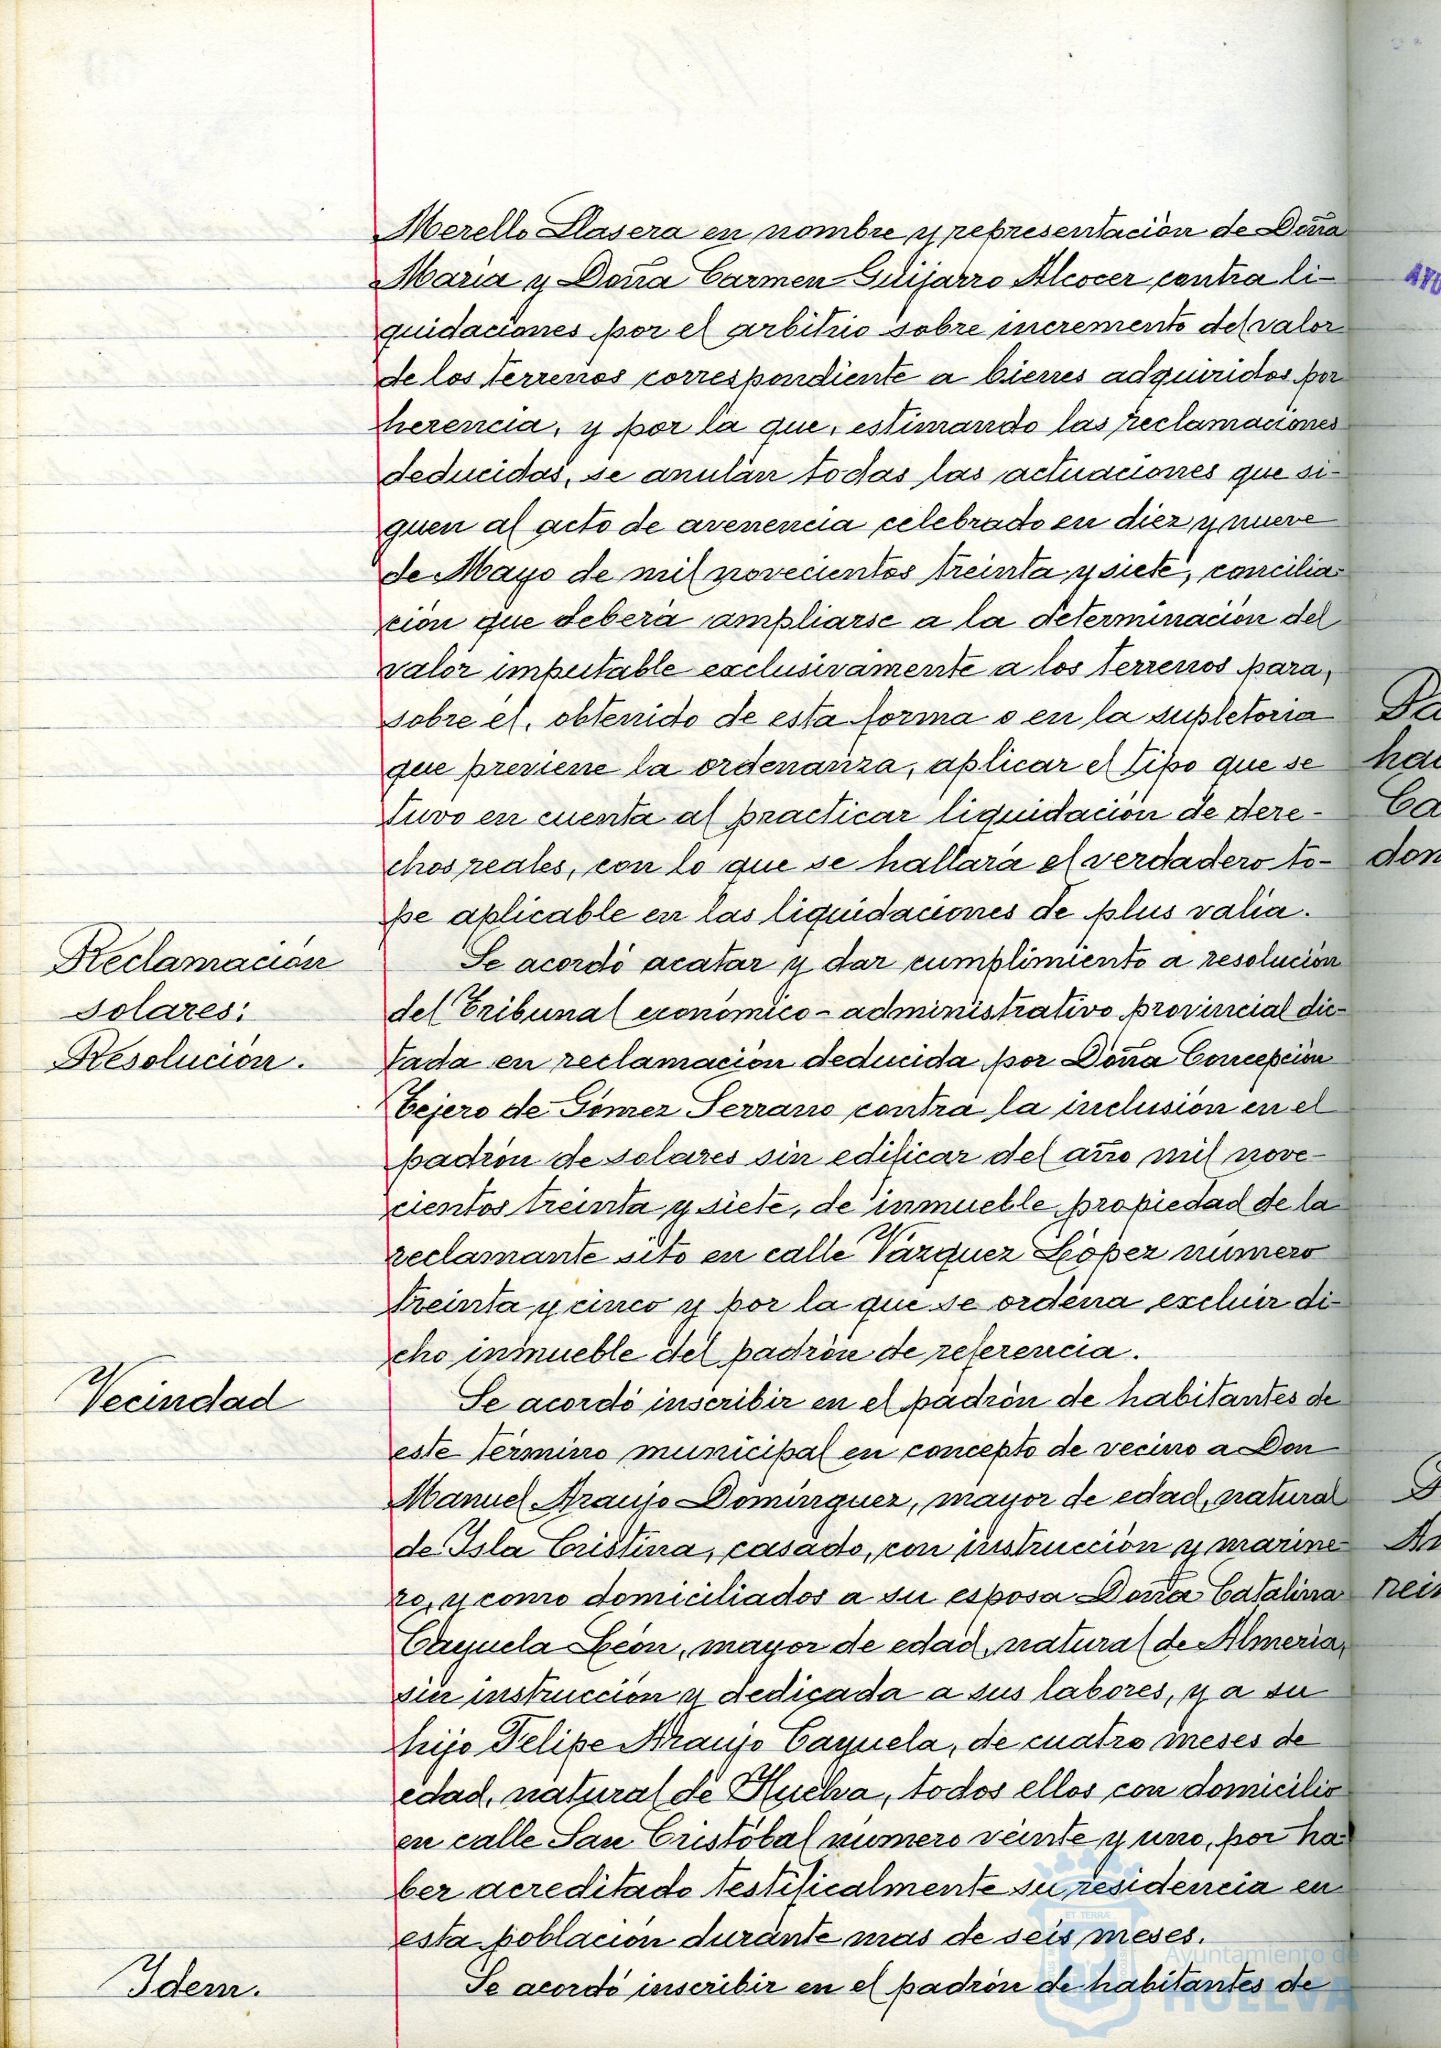 Merello Llasera en nombre y representación de Doña
Maria y Doña Carmen Guijarro Alcocer contra li-
quidaciones por el arbitrio sobre incremento del valor
de los terrenos correspondiente a bienes adquiridos por
herencia, y por la que, estimando las reclamaciones
deducidas, se anulan todas las actuaciones que si-
guen al acto de avenencia celebrado en diez y nueve
de Mayo de mil novecientos treinta y siete, concilia-
ción que deberá ampliarse a la determinación del
valor imputable exclusivamente a los terrenos para,
sobre él, obtenido de esta forma o en la supletoria
que previene la ordenanza, aplicar el tipo que se
tuvo en cuenta al practicar liquidación de dere-
chos reales, con lo que se hallará el verdadero to-
pe aplicable en las liquidaciones de plus valia.
Reclamación
solares:
Resolución.
Se acordó acatar y dar cumplimiento a resolución
del Tribunal económico-administrativo provincial dic-
tada en reclamación deducida por Doña Concepción
Tejero de Gómez Serrano contra la inclusión en el
padrón de solares sin edificar del año mil nove-
cientos treinta y siete, de inmueble propiedad de la
reclamante sito en calle Vázquez López número
treinta y cinco y por la que se ordena excluir di-
cho inmueble del padrón de referencia.
Vecindad
Se acordó inscribir en el padrón de habitantes de
este término municipal en concepto de vecino a Don
Manuel Araujo Dominguez, mayor de edad, natural
de Isla Cristina, casado, con instrucción y marine-
ro, y como domiciliados a su esposa Doña Catalina
Cayuela León, mayor de edad, natural de Almeria,
sin instrucción y dedicada a sus labores, y a su
hijo Felipe Araujo Cayuela, de cuatro meses de
edad, natural de Huelva, todos ellos con domicilio
en calle San Cristóbal número veinte y uno, por ha-
ber acreditado testificalmente su residencia en
esta población durante mas de seis meses.
Idem.
Se acordó inscribir en el padrón de habitantes de
AYU
Pa
hai
Ca
don
An
nein
ET TERRÆ
Ayuntamiento de
HUELVA